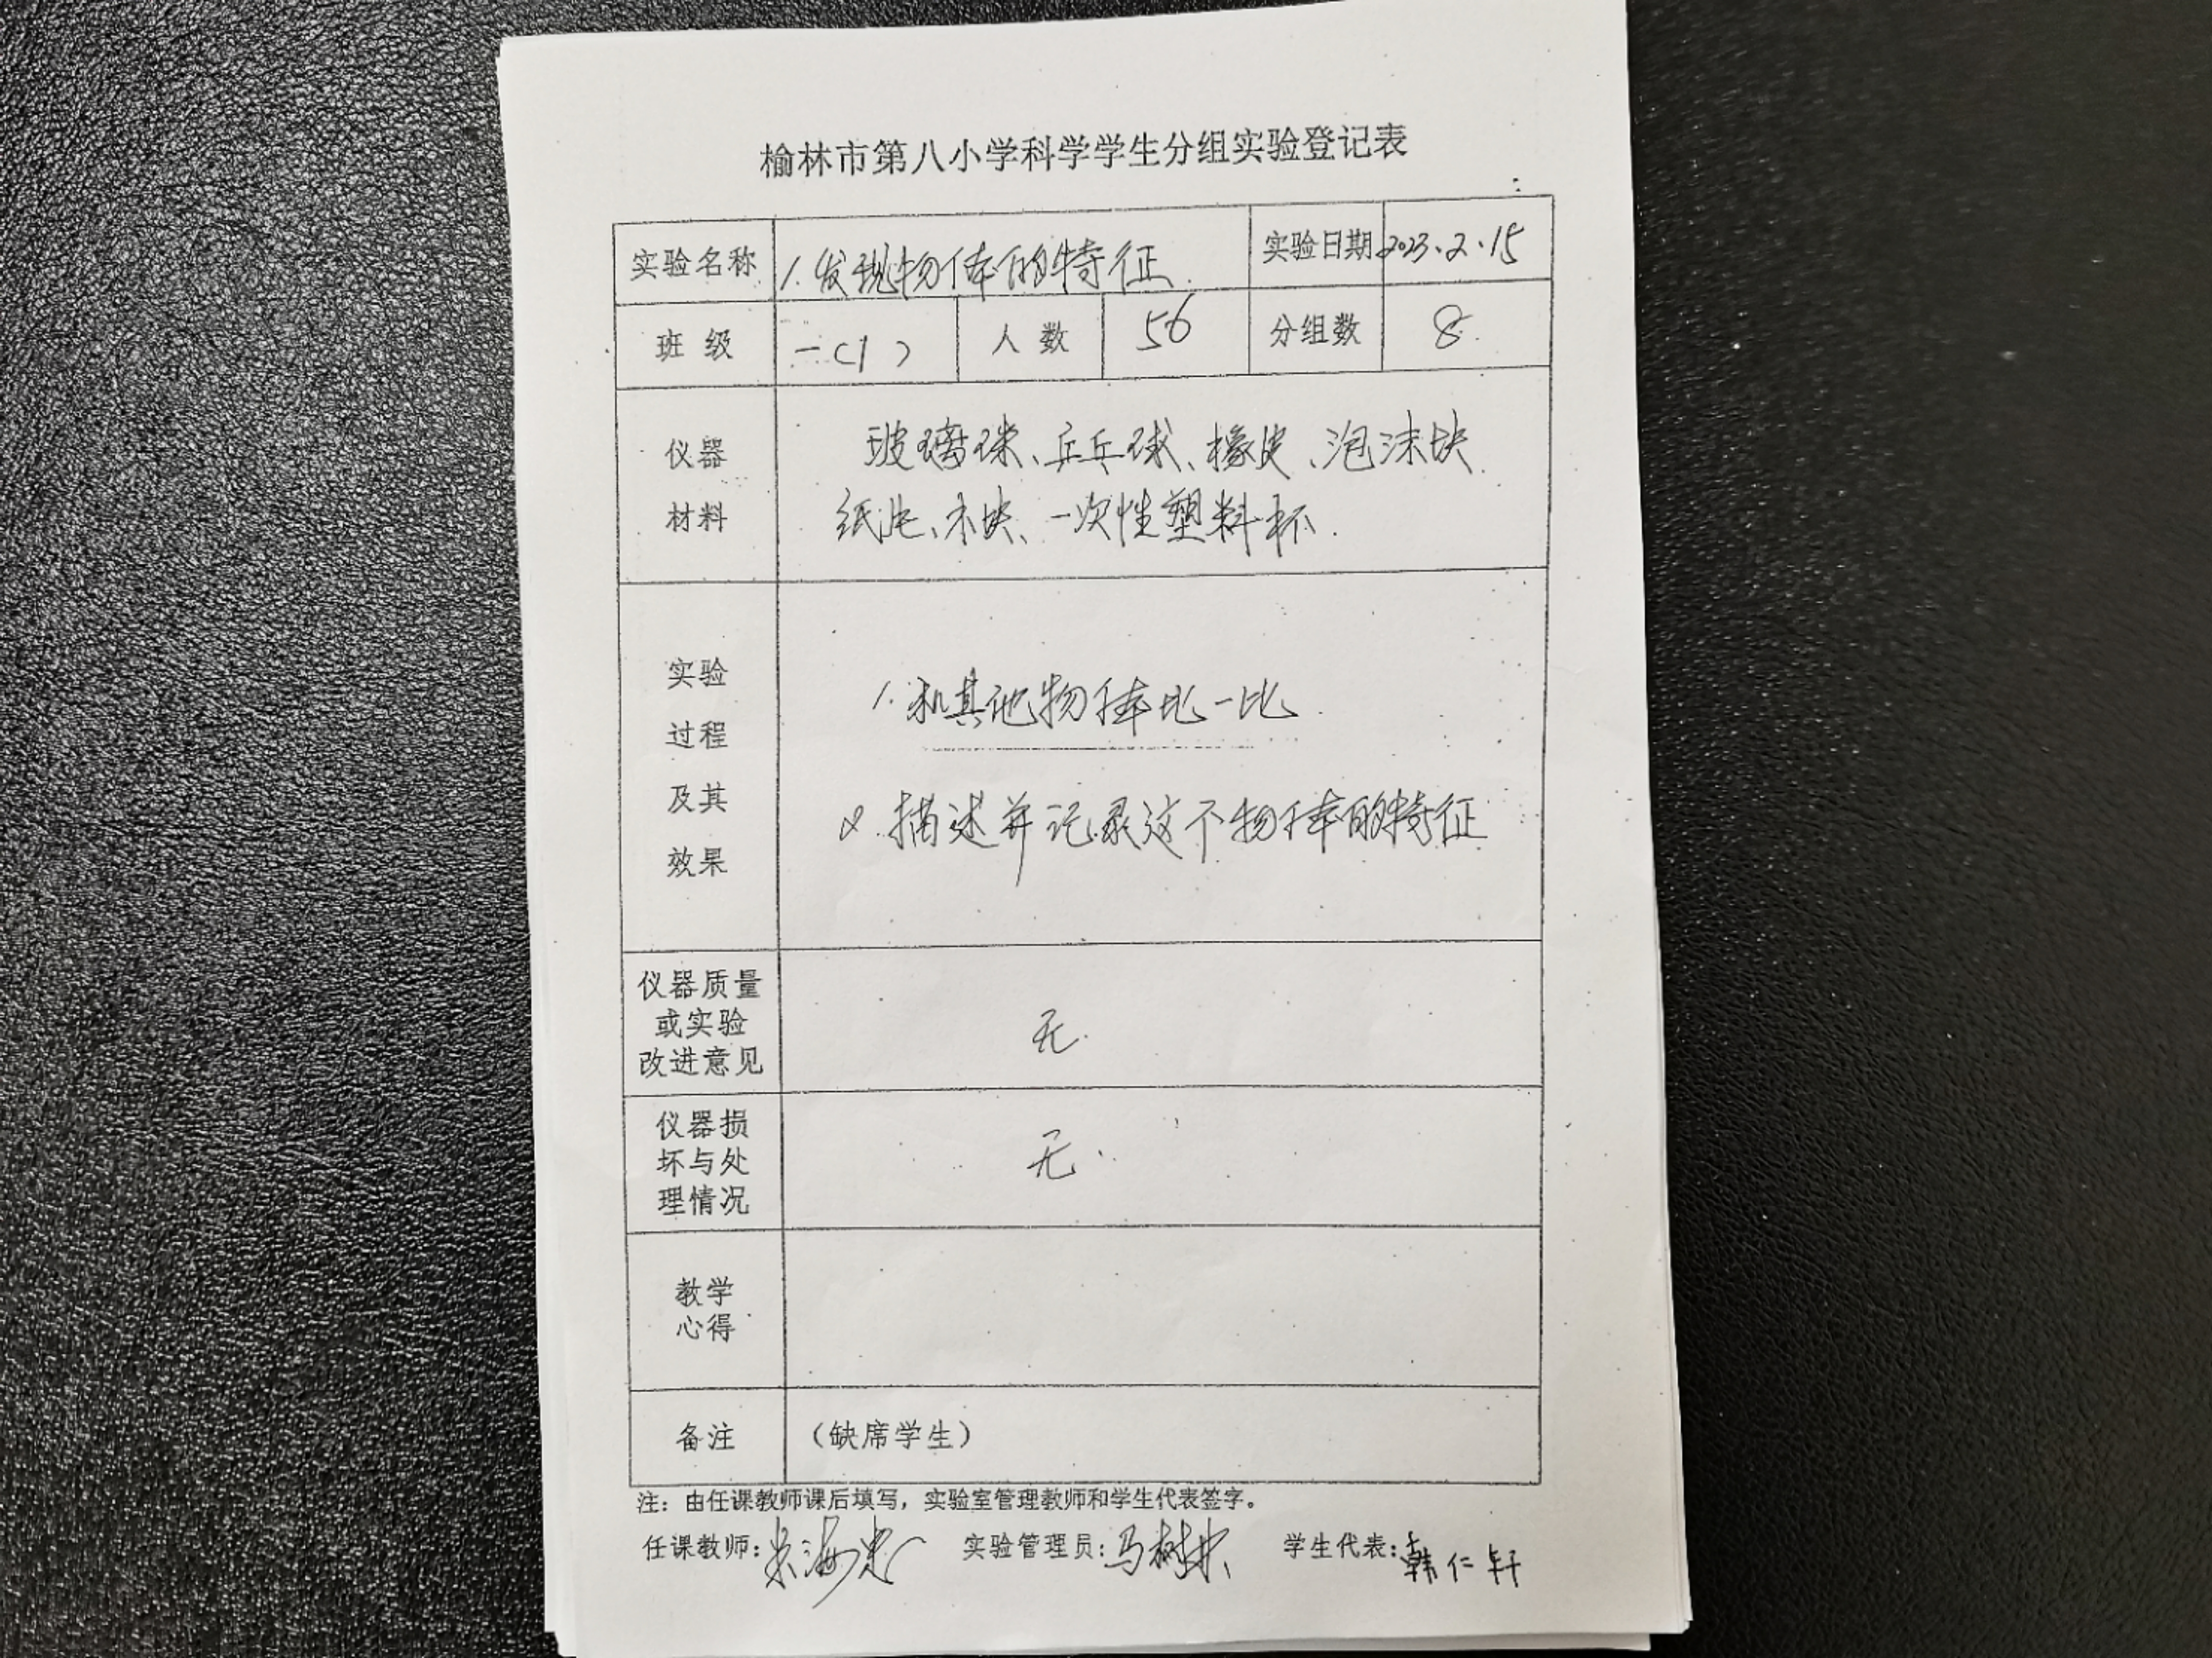 榆林市第八小学科学学生分组实验登记表
实验名称 1.发现物体的特征. 实验日期 2023.2.15
班 级 一(1) 人 数 56 分组数 8.
仪器
材料
玻璃珠、乒乓球、橡皮、泡沫块.
纸片、木块、一次性塑料杯.
实验
过程
及其
效果
1.和其他物体比一比.
2.描述并记录这个物体的特征
仪器质量
或实验
改进意见
无.
仪器损
坏与处
理情况
无.
教学
心得
备注 (缺席学生)
注:由任课教师课后填写,实验室管理教师和学生代表签字。
任课教师: 实验管理员: 学生代表:韩仁轩